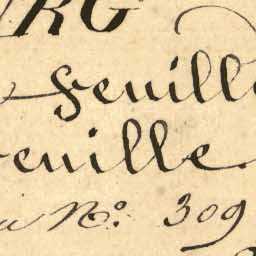 RG
feuille
feuille
N.° 309